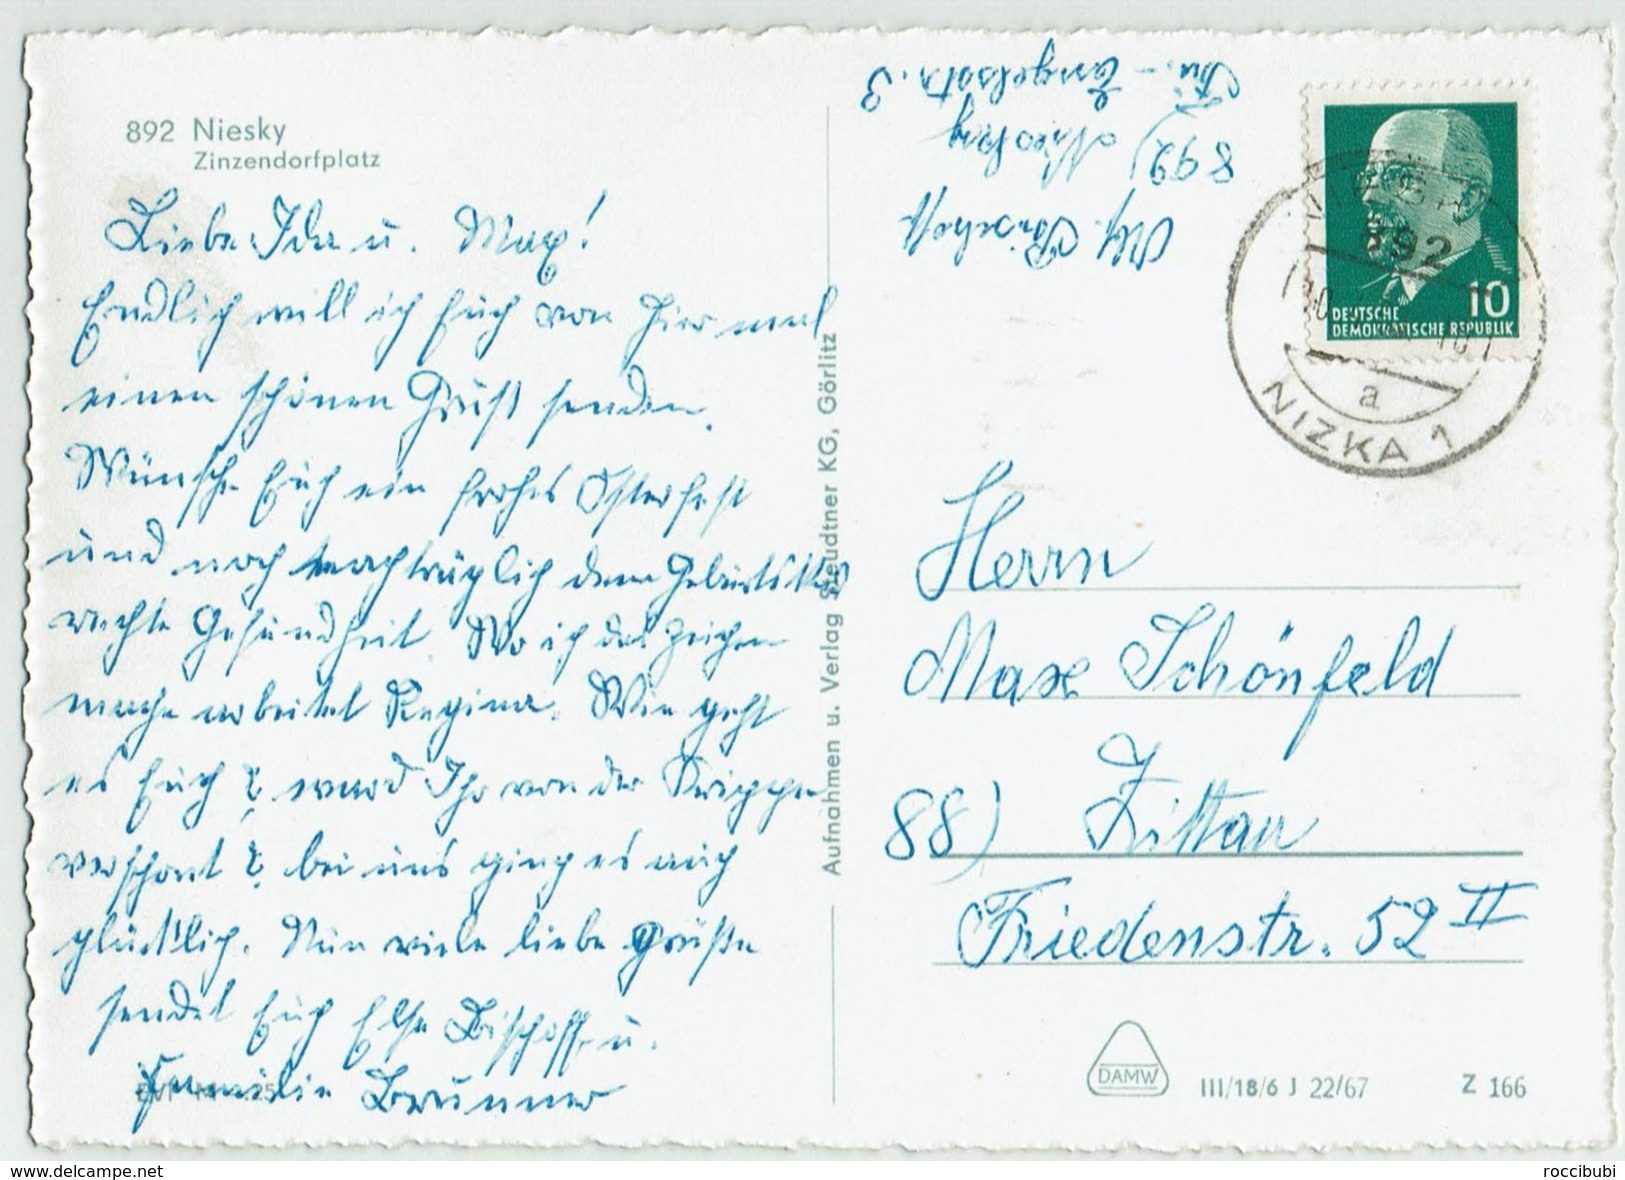 892 Niesky
Zinzendorfplatz
Liebe Ida u. Max!
Endlich will ich Euch von hier mal
einen schönen Gruß senden.
Wünsche Euch ein frohes Osterfest
und noch nachträglich dem Geburtstag
rechte Gesundheit. Wo ich das Zeichen
mache arbeitet Regina. Wie geht
es Euch? ward Ihr von der Krippe
verschont? bei uns ging es auch
glücklich. Nun viele liebe Grüße
sendet Euch Else Bischoff u.
Familie Brunner
Aufnahmen u. Verlag Steudtner KG, Görlitz
Bischoff
892) Niesky
Fr.-Engelsstr. 3
10
DEUTSCHE
DEMOKRATISCHE REPUBLIK
892
a
NIZKA 1
Herrn
Max Schönfeld
88) Zittau
Friedenstr. 52 II
DAMW
III/18/6 J 22/67
Z 166
www.delcampe.net
roccibubi